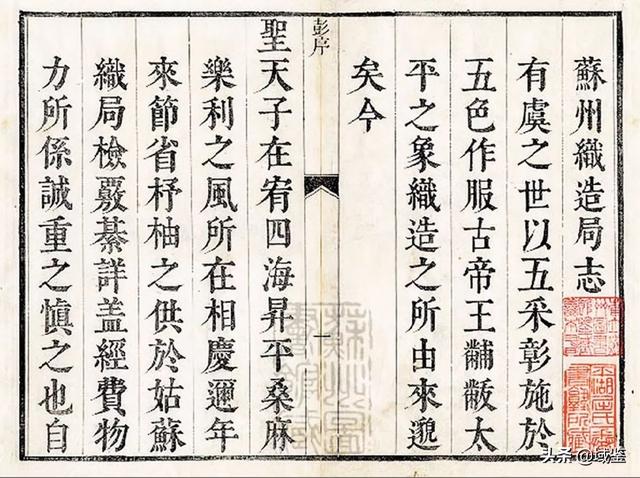 蘇州織造局志
有虞之世以五采彰施於
五色作服古帝王黼黻太
平之象織造之所由來邈
矣今
彭序
一
聖天子在宥四海昇平桑麻
樂利之風所在相慶邇年
來節省杼柚之供於姑蘇
織局檢覈綦詳盖經費物
力所係誠重之慎之也自
头条 @域鉴